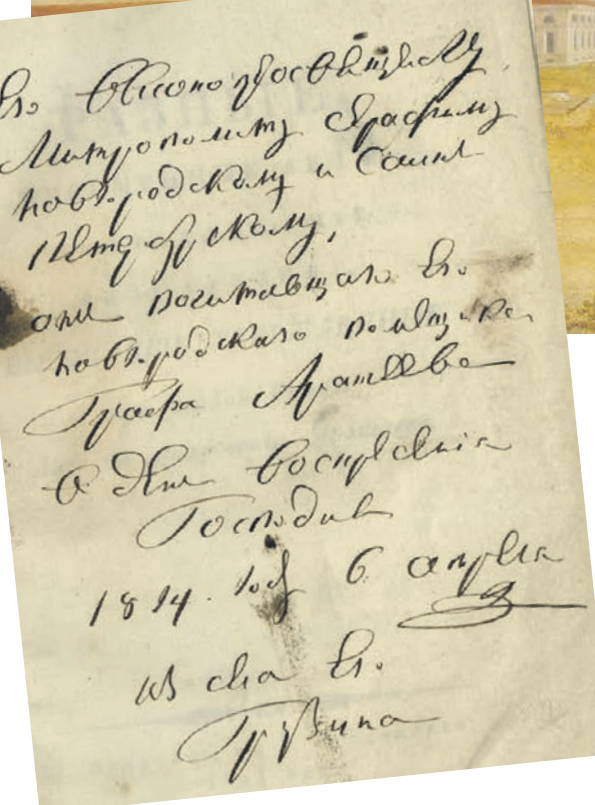 Его Высокопреосвященству
Митрополиту Серафиму
Новгородскому и Санкт
Петербургскому,
от почитающаго Его
новгородскаго помещика
Графа Аракчеева
в день воскресения
Господня
6 апреля
из села Его
Грузина